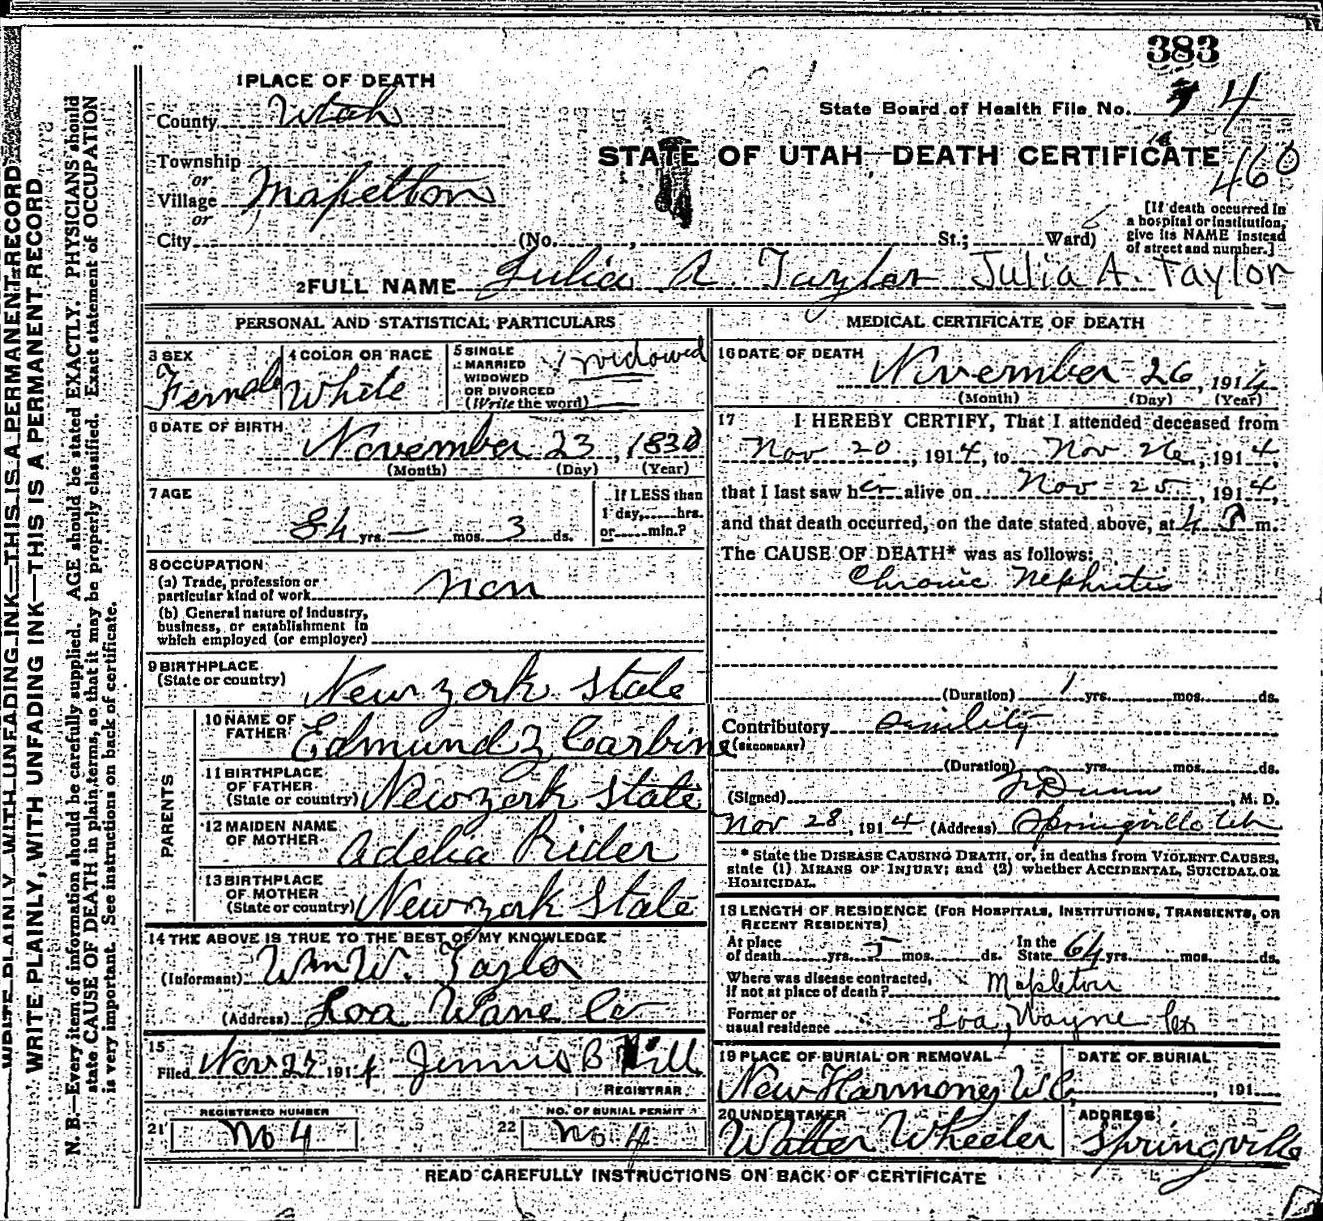 383
1 PLACE OF DEATH
State Board of Health File No. 4
County Utah
STATE OF UTAH—DEATH CERTIFICATE
460
Township
or
Village Mapelton
or
City (No. , St.; Ward)
[If death occurred in
a hospital or institution,
give its NAME instead
of street and number.]
2 FULL NAME Julia A. Taylor Julia A. Taylor
PERSONAL AND STATISTICAL PARTICULARS
3 SEX
Female
4 COLOR OR RACE
White
5 SINGLE
MARRIED
WIDOWED
OR DIVORCED
(Write the word)
Widowed
6 DATE OF BIRTH
November 23, 1830
(Month) (Day) (Year)
7 AGE
84 yrs. — mos. 3 ds.
If LESS than
1 day, hrs.
or min.?
8 OCCUPATION
(a) Trade, profession or
particular kind of work non
(b) General nature of industry,
business, or establishment in
which employed (or employer)
9 BIRTHPLACE
(State or country)
New York State
PARENTS
10 NAME OF
FATHER
Edmund Z Carbine
11 BIRTHPLACE
OF FATHER
(State or country) New York State
12 MAIDEN NAME
OF MOTHER
Adelia Rider
13 BIRTHPLACE
OF MOTHER
(State or country) New York State
14 THE ABOVE IS TRUE TO THE BEST OF MY KNOWLEDGE
(Informant) Wm W. Taylor
(Address) Loa Wane Co
15
Filed Nov 27 1914 Jennie B Hill
REGISTRAR
REGISTERED NUMBER
21 No 4
NO. OF BURIAL PERMIT
22 No 4
MEDICAL CERTIFICATE OF DEATH
16 DATE OF DEATH
November 26, 1914
(Month) (Day) (Year)
17 I HEREBY CERTIFY, That I attended deceased from
Nov 20, 1914, to Nov 26, 1914,
that I last saw her alive on Nov 25, 1914,
and that death occurred, on the date stated above, at 4 P m.
The CAUSE OF DEATH* was as follows:
Chronic Nephritis
(Duration) 1 yrs. mos. ds.
Contributory senility
(SECONDARY)
(Duration) yrs. mos. ds.
(Signed) Dunn, M. D.
Nov 28, 1914 (Address) Springville Utah
* State the DISEASE CAUSING DEATH, or, in deaths from VIOLENT CAUSES,
state (1) MEANS OF INJURY; and (2) whether ACCIDENTAL, SUICIDAL OR
HOMICIDAL.
18 LENGTH OF RESIDENCE (FOR HOSPITALS, INSTITUTIONS, TRANSIENTS, OR
RECENT RESIDENTS)
At place
of death yrs. 5 mos. ds.
In the
State 64 yrs. mos. ds.
Where was disease contracted,
if not at place of death? Mapleton
Former or
usual residence Loa, Wayne Co
19 PLACE OF BURIAL OR REMOVAL
New Harmony W C
DATE OF BURIAL
, 191
20 UNDERTAKER
Walter Wheeler
ADDRESS
Springville
READ CAREFULLY INSTRUCTIONS ON BACK OF CERTIFICATE
WRITE PLAINLY, WITH UNFADING INK—THIS IS A PERMANENT RECORD
WRITE PLAINLY, WITH UNFADING INK—THIS IS A PERMANENT RECORD.
N. B.—Every item of information should be carefully supplied. AGE should be stated EXACTLY. PHYSICIANS should
state CAUSE OF DEATH in plain terms, so that it may be properly classified. Exact statement of OCCUPATION
is very important. See instructions on back of certificate.